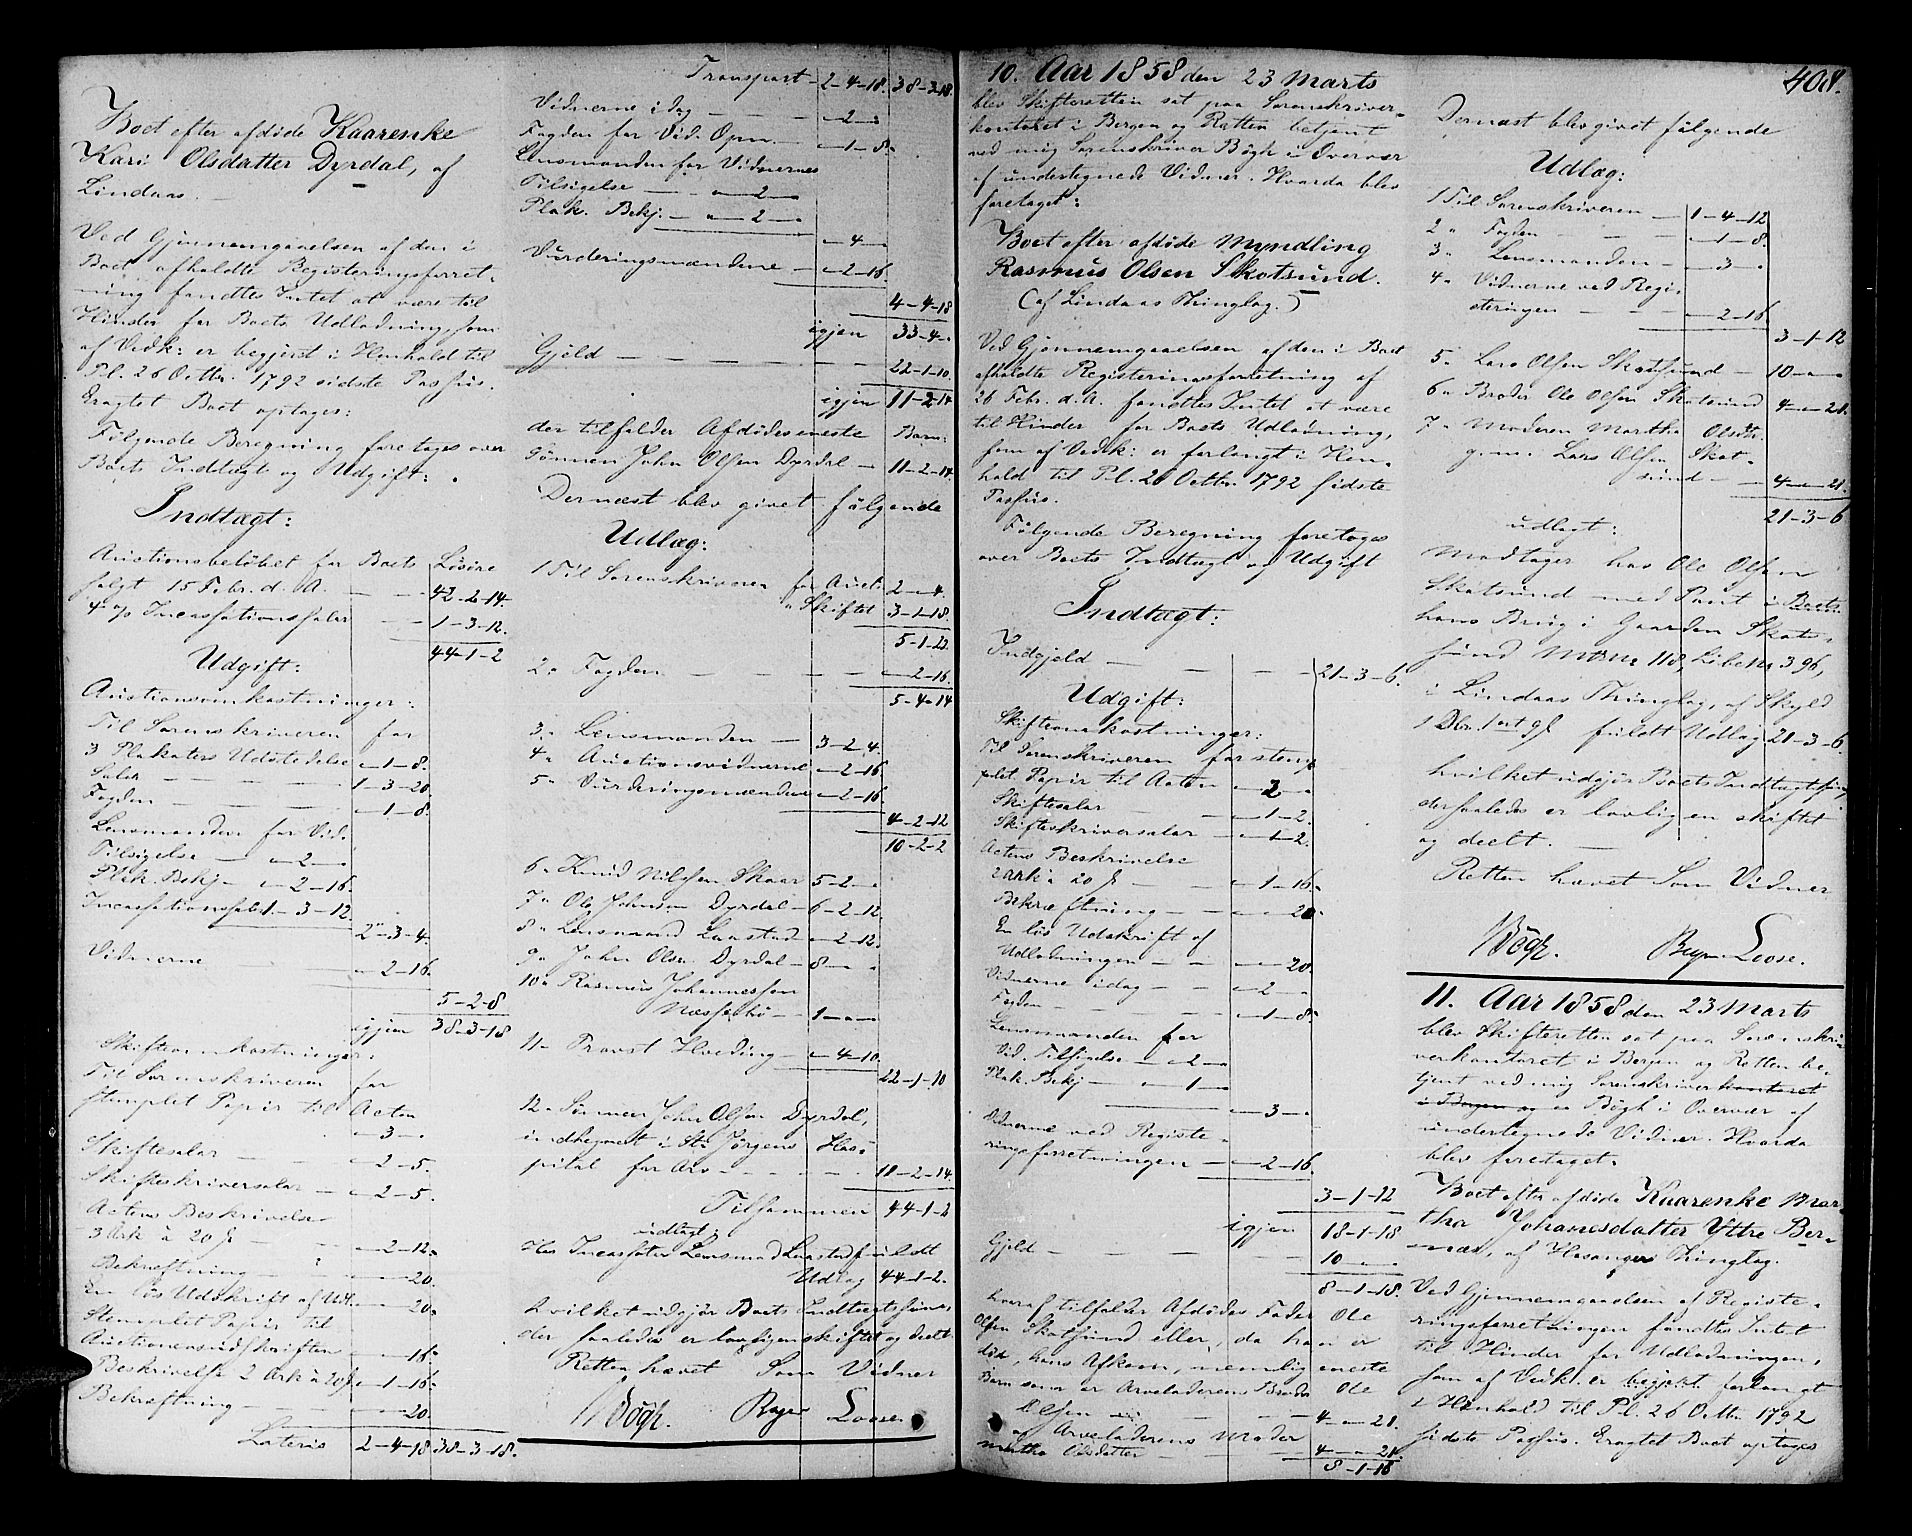 Boet efter afdöde Kaarenke
Kari Olsdatter Dyrdal, af
Lindaas. —
Ved Gjennemgaaelsen af den i
Boet afholdte Registeringsforret-
ning fandtes Intet at være til
Hinder for Boets Udladning, som
af Vedk: er begjert i Henhold til
Pl. 26 Octbr. 1792 sidste Passus.
Eragtet Boet optages:
Fölgende Beregning foretages over
Boets Indtægt og Udgift:
Indtægt:
Auctionsbelöbet for Boets Lösöre
solgt 15 Febr. d. A. — — 42-2-14.
4 o/o Incassationssalar — — 1-3-12.
44-1-2
Udgift:
Auctionsomkostninger:
Til Sorenskriveren for
3 Plakaters Udstedelse „-1-8.
Salar — — — 1-3-20.
Fogden — — — „-1-8.
Lensmanden for Vid.
Tilsigelse — „-2-„
Plak. Bekj. — „-2-16.
Incassationssalar 1-3-12.
2-3-4.
Vidnerne — „-2-16.
5-2-8
igjen 38-3-18
Skifteomkostninger:
Til Sorenskriveren for
stemplet Papir til Acten
„-3-„
Skiftesalar — — „-2-5.
Skifteskriversalar — „-2-5.
Actens Beskrivelse
3 Ark à 20 s — — „-2-12.
Bekræftning — „-„-20.
En lös Udskrift af Udl. „-„-20.
Stemplet Papir til
Auctionsudskriften — „-„-16.
Beskrivelse 2 Ark à 20 s „-1-16.
Bekræftning — „-„-20.
Lateris 2-4-18 38-3-18.
Transport 2-4-18. 38-3-18.
Vidnerne idag — — — „-2-„
Fogden for Vid. Opn. — „-1-8.
Lensmanden for Vidnernes
Tilsigelse — „-2-„
Plak. Bekj. — „-2-„
„-4-„
Vurderingsmændene — „-2-16.
4-4-18
igjen 33-4-„
Gjeld — — — — 22-1-10.
igjen 11-2-14
der tilfalder Afdödes eneste Barn:
Sönnen John Olsen Dyrdal — 11-2-14.
Dernæst blev givet fölgende
Udlæg:
1 Til Sorenskriveren for Auct. 2-„-4.
„ Skiftet 3-1-18.
5-1-22.
2 „ Fogden — — — „-2-16.
5-4-14
3 „ Lensmanden — 3-2-4.
4 „ Auctionsvidnerne „-2-16
5 „ Vurderingsmændene „-2-16.
4-2-12
10-2-2
6 „ Knud Nilssen Skaar 5-2-„
7 „ Ole Johnsen Dyrdal — 6-2-12.
8 „ Lensmand Laastad „-2-12.
9 „ John Olsen Dyrdal — 8-„-„
10 „ Rasmus Johannessen
Næssebö — 1-„-„
11 „ Provst Hveding — „-4-10.
22-1-10
12 „ Sönnen John Olsen Dyrdal,
indtegnet i St. Jörgens Hos-
pital for Arv — — — 11-2-14.
Tilsammen 44-1-2
udlagt:
Hos Incassator Lensmand Laastad fuldt
Udlæg 44-1-2.
hvilket udgjör Boets Indtægtssum,
der saaledes er lovligen skiftet og deelt.
Retten hævet Som Vidner
Bögh. Beyer Loose.
408.
10. Aar 1858 den 23 Marts
blev Skifteretten sat paa Sorenskriver-
kontoret i Bergen og Retten betjent
ved mig Sorenskriver Bögh i Overvær
af undertegnede Vidner. Hvorda blev
foretaget:
Boet efter afdöde Myndling
Rasmus Olsen Skotsund.
(af Lindaas Thinglag.)
Ved Gjennemgaaelsen af den i Boet
afholdte Registeringsforretning af
26 Febr. d. A. fandtes Intet at være
til Hinder for Boets Udladning,
som af Vedk: er forlangt i Hen-
hold til Pl. 26 Octbr. 1792 sidste
Passus.
Fölgende Beregning foretages
over Boets Indtægt og Udgift
Indtægt:
Indgjeld — — — — 21-3-6.
Udgift:
Skifteomkostninger:
Til Sorenskriveren for stemp-
plet Papir til Acten „-2-„
Skiftesalar — „-1-2.
Skifteskriversalar — „-1-2.
Actens Beskrivelse
2 Ark à 20 s — — „-1-16.
Bekræftning — — „-„-20.
En lös Udskrift af
Udladningen — — „-„-20.
Vidnerne idag — „-2-„
Fogden — — — „-1-8.
Lensmanden for
Vid. Tilsigelse — „-2-„
Plak. Bekj — „-1-„
„-3-„
Vidnerne ved Registe-
ringsforretningen — „-2-16.
3-1-12
igjen 18-1-18
Gjeld — — — — 10-„-„
8-1-18.
hvoraf tilfalder Afdödes Fader Ole
Olsen Skotsund eller, da han er
död, hans Afkom, nemlig eneste
Barn som er Arveladerens Broder Ole
Olsen — — — 4-„-21
og Arveladerens Moder
Martha Olsdatter — 4-„-21.
8-1-18
Dernæst blev givet fölgende
Udlæg:
1 Til Sorenskriveren — 1-4-12
2 „ Fogden — — — „-1-8.
3 „ Lensmanden — „-3-„
4 „ Vidnerne ved Regi-
steringen — — — „-2-16.
3-1-12
5 „ Lars Olsen Skotsund — 10-„-„
6 „ Broder Ole Olsen Skotsund 4-„-21.
7 „ Moderen Martha Olsdtr.
g. m. Lars Olsen Skot-
sund — — 4-„-21.
21-3-6
udlagt:
Modtager hos Ole Olsen
Skotsund med Pant i
hans Brug i Gaarden Skot-
sund M. No. 118, Löbe No. 396,
i Lindaas Thinglag, af Skyld
1 Dlr. 1 ort 9 s fuldt Udlæg 21-3-6.
hvilket udgjör Boets Indtægtssum,
der saaledes er lovligen skiftet
og deelt. —
Retten hævet Som Vidner
Bögh. Beyer Loose.
11. Aar 1858 den 23 Marts
blev Skifteretten sat paa Sorenskri-
verkontoret i Bergen og Retten be-
tjent ved mig Sorenskriver kontoret
i Bergen og Bögh i Overvær af
undertegnede Vidner. Hvorda
blev foretaget.
Boet efter afdöde Kaarenke Mar-
tha Johannesdatter Yttre Ber-
næs, af Hosanger Thinglag.
Ved Gjennemgaaelsen af Registe-
ringsforretningen fandtes Intet
til Hinder for Udladningen,
som af Vedk. er begjert forlangt
i Henhold til Pl. 26 Octbr 1792
sidste Passus. Eragtet Boet optages